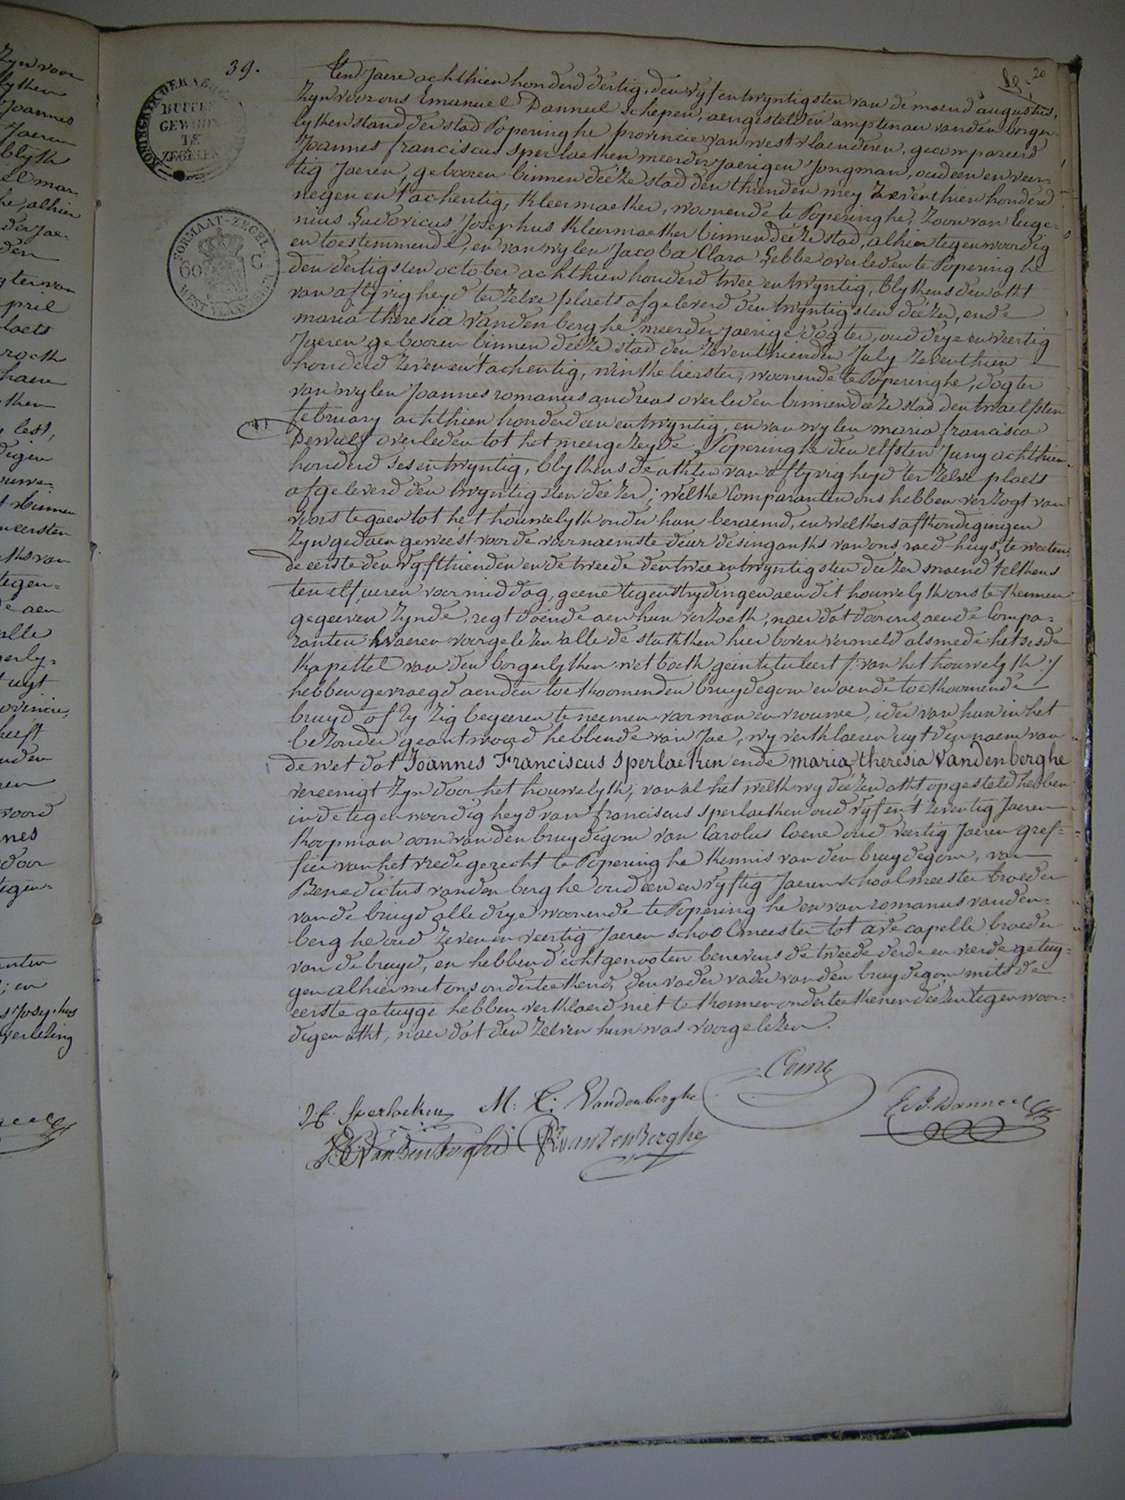 39.
20
BUITEN
GEWOON
TE
ZEGELEN
FORMAAT-ZEGEL
60 C
WEST VLAENDEREN
Ten Jaere achthien honderd dertig, den vyf en twyntigsten van de maend augustus,
Zyn voor ons Emanuel Danneel schepen, aengestelden amptenaer van den borger-
lyken stand der stad Poperinghe provincie van westvlaenderen, gecompareerd
Joannes franciscus sperlaeken meerderjaerigen Jongman, oud een en veer-
tig Jaeren, gebooren binnen deéze stad den thienden mey zeventhien honderd
negen en tachentig, Kleermaeker, woonende te Poperinghe, zoon van Euge-
nius Ludovicus Josephus Kleermaeker binnen deéze stad, alhier tegenwoordig
en toestemmende, en van wylen Jacoba Clara Lebbe overleden te Poperinghe
den dertigsten october achthien honderd twee en twyntig, blykens den akt
van aflyvigheyd ter zelve plaets afgeleverd den twyntigsten deézer, ende
maria theresia Vandenberghe meerderjaerige dogter, oud drye en veertig
Jaeren gebooren binnen deéze stad den zeventhienden July zeventhien
honderd zeven en tachentig, winkelierster, woonende te Poperinghe, dogter
van wylen Joannes romanus andreas overleden binnen deéze stad den twaelfsten
february achthien honderd een en twyntig, en van wylen maria francisca
Dewulf overleden tot het meergezeyde Poperinghe den elfsten Juny achthien
honderd ses en twyntig, blykens de akten van aflyvigheyd ter zelve plaets
afgeleverd den twyntigsten deézer; welke Comparanten ons hebben verzogt van
voors te gaen tot het houwelyk onder hun beraemd, en welkers afkondigingen
zyn gedaen geweest voor de voornaemste deur des inganks van ons raed-huys, te weeten,
de eerste den vyfthienden en de tweede den twee en twyntigsten deézer maend telkens
ten elf ueren voor middag, geene tegenstrydingen aen dit houwelyk ons te kennen
gegeéven zynde, regt doende aen hun verzoek, naer dat door ons, aen de Compa-
ranten waeren voorgelezen alle de stukken hier boven vermeld alsmede het sesde
Kapittel van den borgerlyken wet boek geïntituleert /: van het houwelyk :/
hebben gevraegd aen den toekoomenden bruydegom en aen de toekoomende
bruyd of zy zig begeeren te neémen voor man en vrouwe, ider van hun in het
bezonder geantwoord hebbende van Jae, wy verklaeren uyt der naem van
de wet dat Joannes Franciscus Sperlaeken ende maria theresia Vandenberghe
vereenigt zyn door het houwelyk, van al het welk wy deézen akt opgesteld hebben
in de tegenwoordigheyd van franciscus sperlaeken oud vyf en t zeventig Jaeren
Koopman oom van den bruydegom van Carolus Coene oud veertig Jaeren gref-
fier van het vrede gerecht te Poperinghe Kennis van den bruydegom, van
Benedictus vandenberghe oud een en vyftig Jaeren schoolmeester broeder
van de bruyd alle drye woonende te Poperinghe en van romanus vanden-
berghe oud zeven en veertig Jaeren schoolmeester tot avecapelle broeder
van de bruyd, en hebben d'echtgenooten benevens de tweede derde en vierde getuy-
gen alhier met ons onderteekend, den vader van den bruydegom mits de
eerste getuyge hebben verklaerd niet te konnen onderteekenen deézen tegenwoor-
digen akt, naer dat den zelven hun was voorgelezen.
J F Sperlaeken M: T: Vandenberghe Coene E. J. Danneel
B Vandenberghe R Vandenberghe